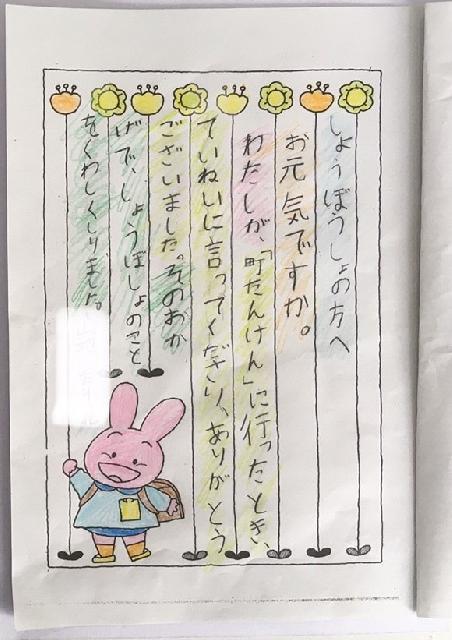 しょうぼうしょの方へ
お元気ですか。
わたしが、「町たんけん」に行ったとき、
ていねいに言ってくださり、ありがとう
ございました。そのおか
げで、しょうぼしょのこと
をくわしくしりました。